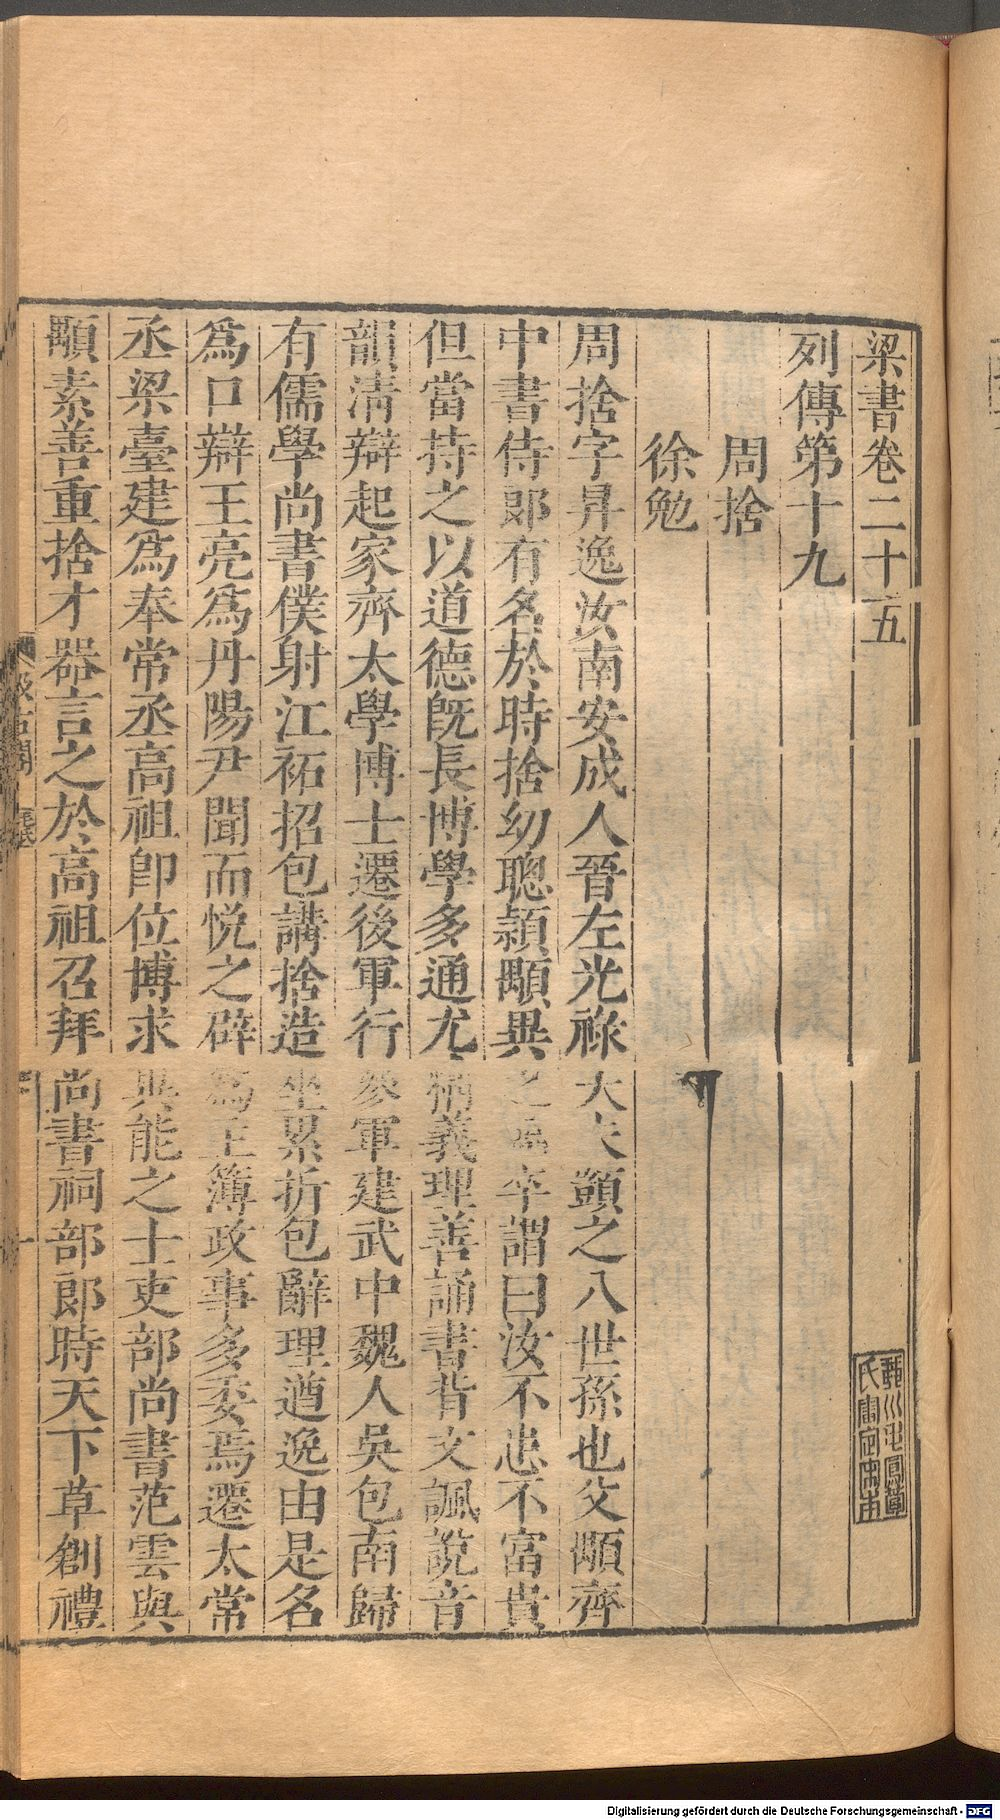 梁書卷二十五
列傳第十九
周捨
徐勉
周捨字昇逸汝南安成人晉左光祿大夫顗之八世孫也父顒齊
中書侍郎有名於時捨幼聰穎顒異之臨卒謂曰汝不患不富貴
但當持之以道德既長博學多通尤精義理善誦書背文諷說音
韻清辯起家齊太學博士遷後軍行參軍建武中魏人吳包南歸
有儒學尚書僕射江祏招包講捨造坐累折包辭理遒逸由是名
爲口辯王亮爲丹陽尹聞而悅之辟爲主簿政事多委焉遷太常
丞梁臺建爲奉常丞高祖即位博求異能之士吏部尚書范雲與
顒素善重捨才器言之於高祖召拜尚書祠部郎時天下草創禮
汲古閣
毛氏
一
Digitalisierung gefördert durch die Deutsche Forschungsgemeinschaft - DFG